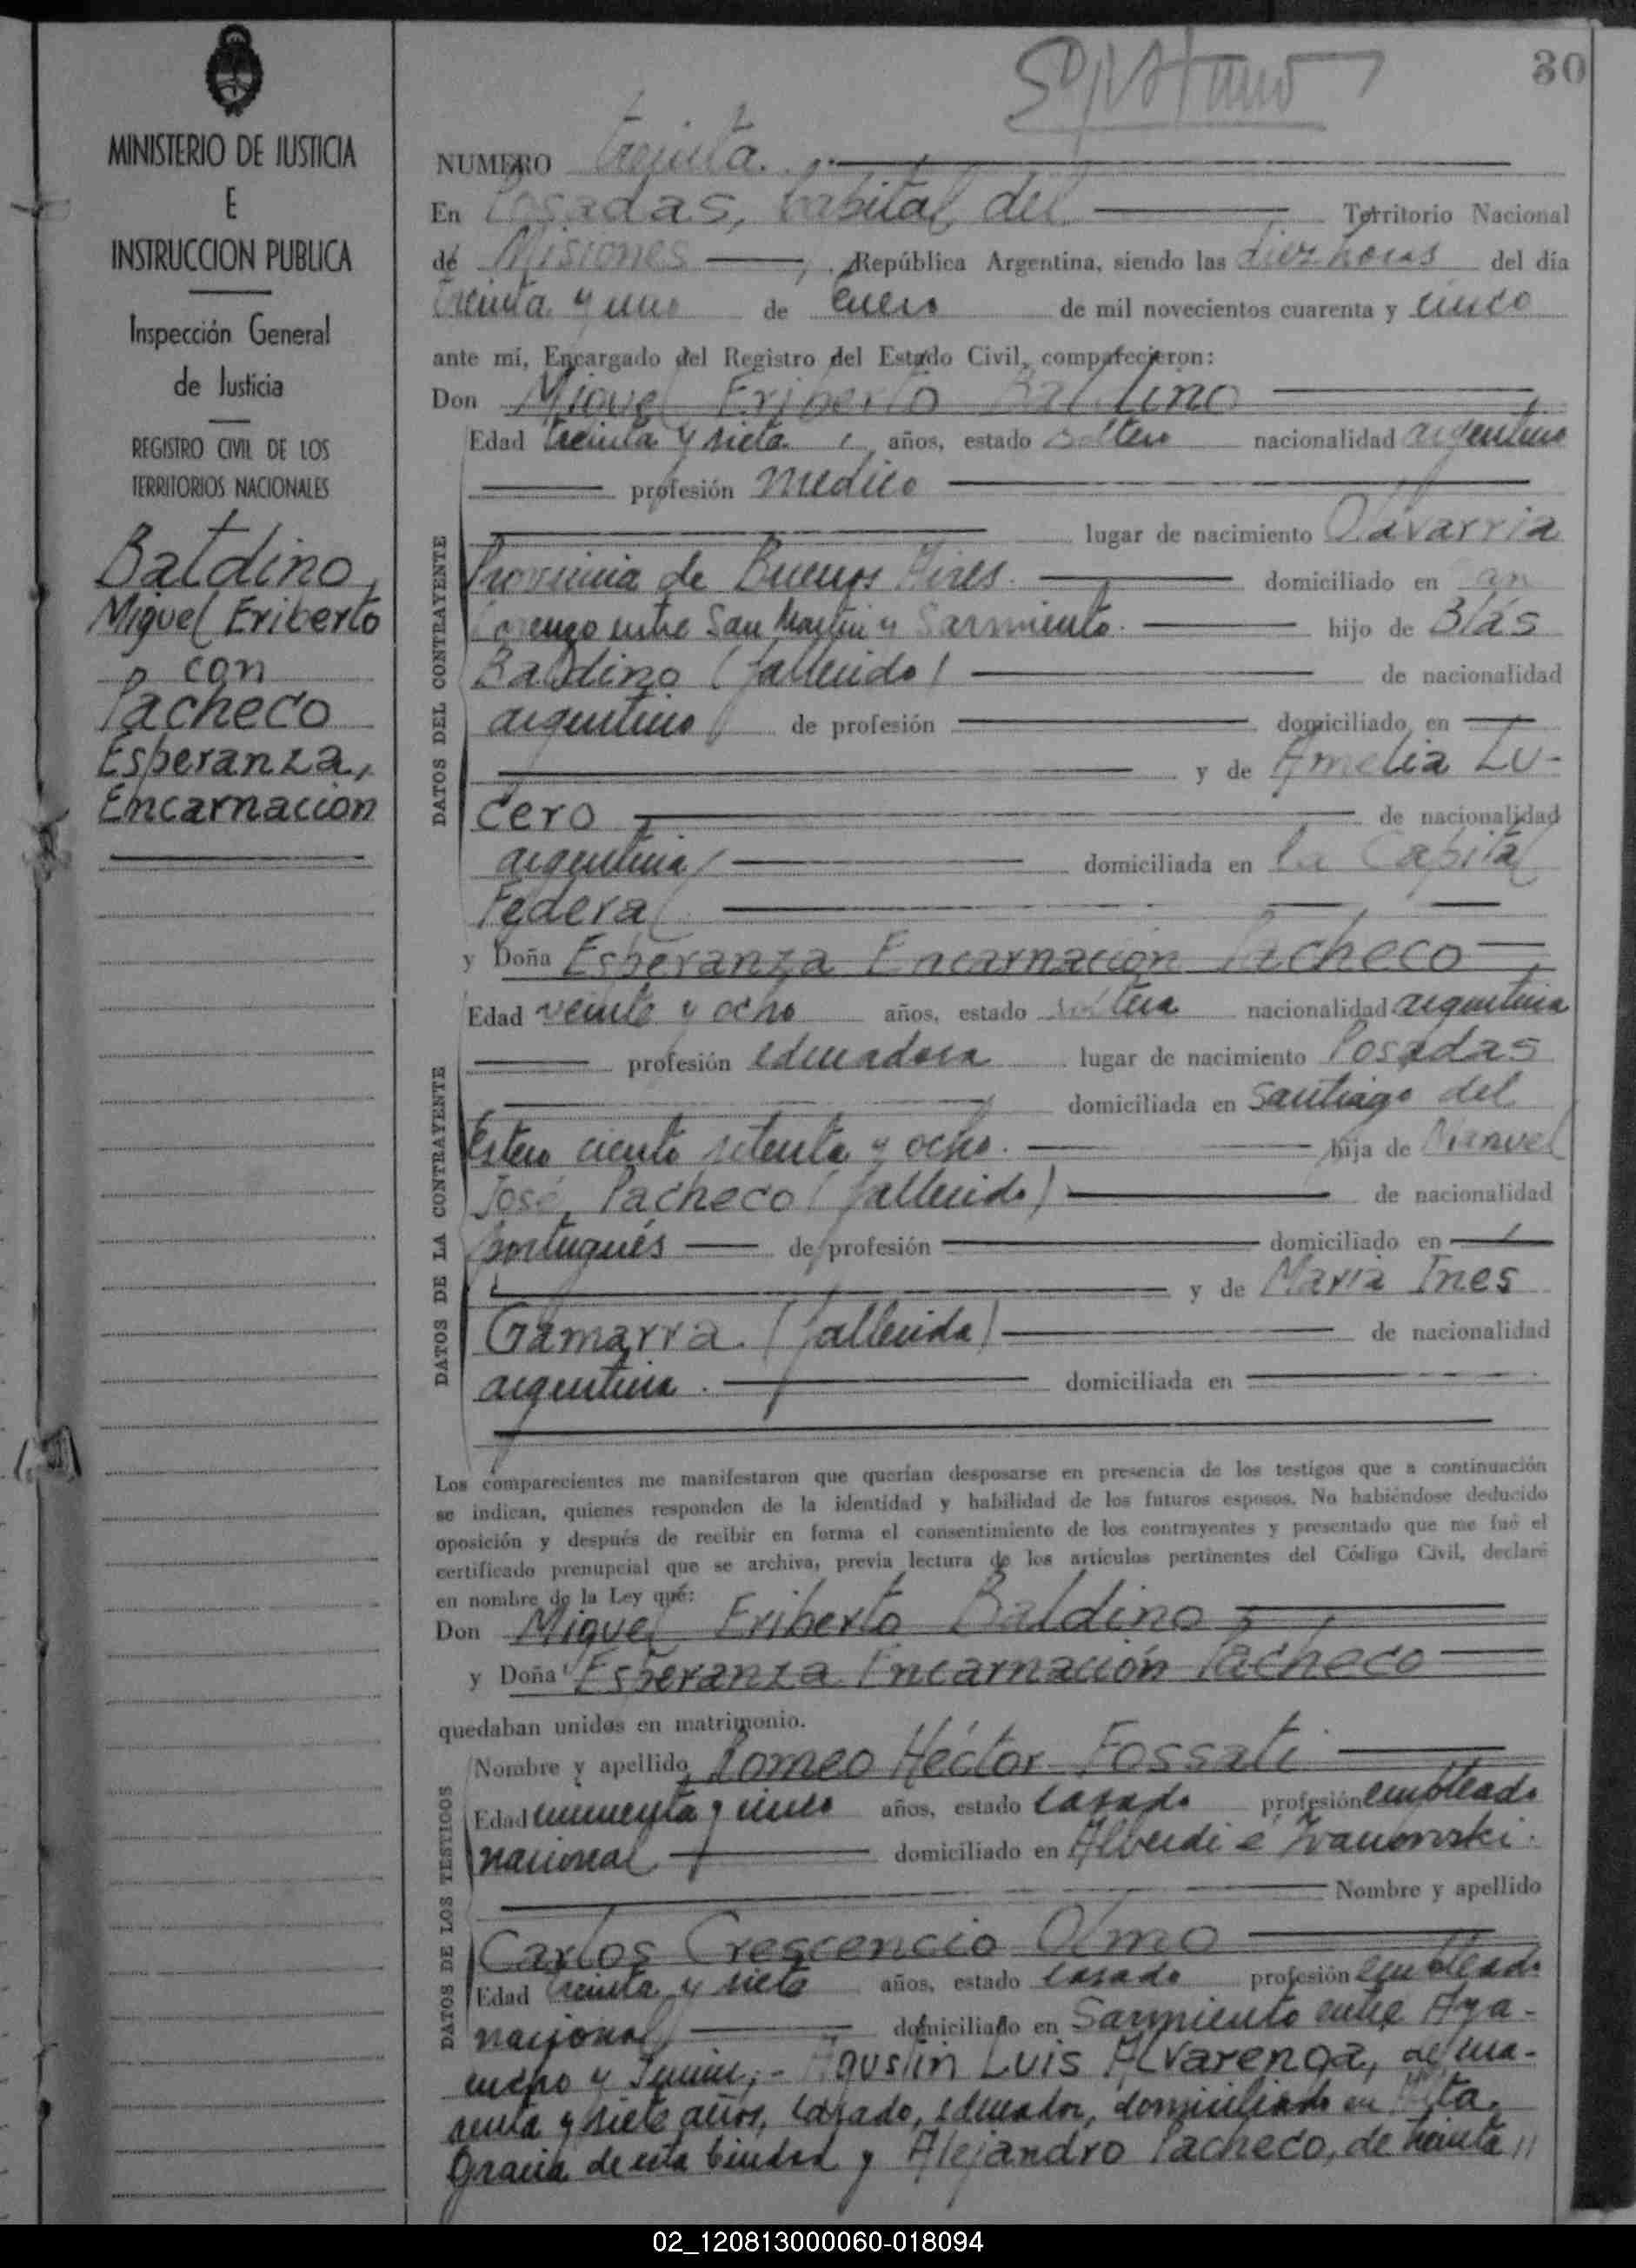 30
MINISTERIO DE JUSTICIA
E
INSTRUCCION PUBLICA
Inspección General
de Justicia
REGISTRO CIVIL DE LOS
TERRITORIOS NACIONALES
Baldino,
Miguel Eriberto
con
Pacheco
Esperanza,
Encarnación
NUMERO treinta.
En Posadas, Capital del Territorio Nacional
de Misiones, República Argentina, siendo las diez horas del día
treinta y uno de Enero de mil novecientos cuarenta y cinco
ante mí, Encargado del Registro del Estado Civil, comparecieron:
Don Miguel Eriberto Baldino
DATOS DEL CONTRAYENTE
Edad treinta y siete, años, estado soltero nacionalidad argentino
profesión médico
lugar de nacimiento Olavarria
Provincia de Buenos Aires. domiciliado en San
Lorenzo entre San Martin y Sarmiento. hijo de Blás
Baldino (fallecido) de nacionalidad
argentino de profesión domiciliado en
y de Amelia Lu-
cero de nacionalidad
argentina domiciliada en la Capital
Federal
y Doña Esperanza Encarnación Pacheco
DATOS DE LA CONTRAYENTE
Edad veinte y ocho años, estado soltera nacionalidad argentina
profesión educadora lugar de nacimiento Posadas
domiciliada en Santiago del
Estero ciento setenta y ocho. hija de Manuel
José Pacheco (fallecido) de nacionalidad
portugués de profesión domiciliado en
y de Maria Ines
Gamarra. (fallecida) de nacionalidad
argentina. domiciliada en
Los comparecientes me manifestaron que querían desposarse en presencia de los testigos que a continuación
se indican, quienes responden de la identidad y habilidad de los futuros esposos. No habiéndose deducido
oposición y después de recibir en forma el consentimiento de los contrayentes y presentado que me fué el
certificado prenupcial que se archiva, previa lectura de los artículos pertinentes del Código Civil, declaré
en nombre de la Ley qué:
Don Miguel Eriberto Baldino
y Doña Esperanza Encarnación Pacheco
quedaban unidos en matrimonio.
DATOS DE LOS TESTIGOS
Nombre y apellido Romeo Héctor Fossati
Edad cincuenta y cinco años, estado casado profesión empleado
nacional domiciliado en Alberdi é Ivanowski.
Nombre y apellido
Carlos Crescencio Olmo
Edad treinta y siete años, estado casado profesión empleado
nacional domiciliado en Sarmiento entre Aya-
cucho y Junin;- Agustin Luis Alvarenga, de cua-
renta y siete años, casado, educador, domiciliado en Villa
Gracia de esta Ciudad y Alejandro Pacheco, de treinta
02_120813000060-018094